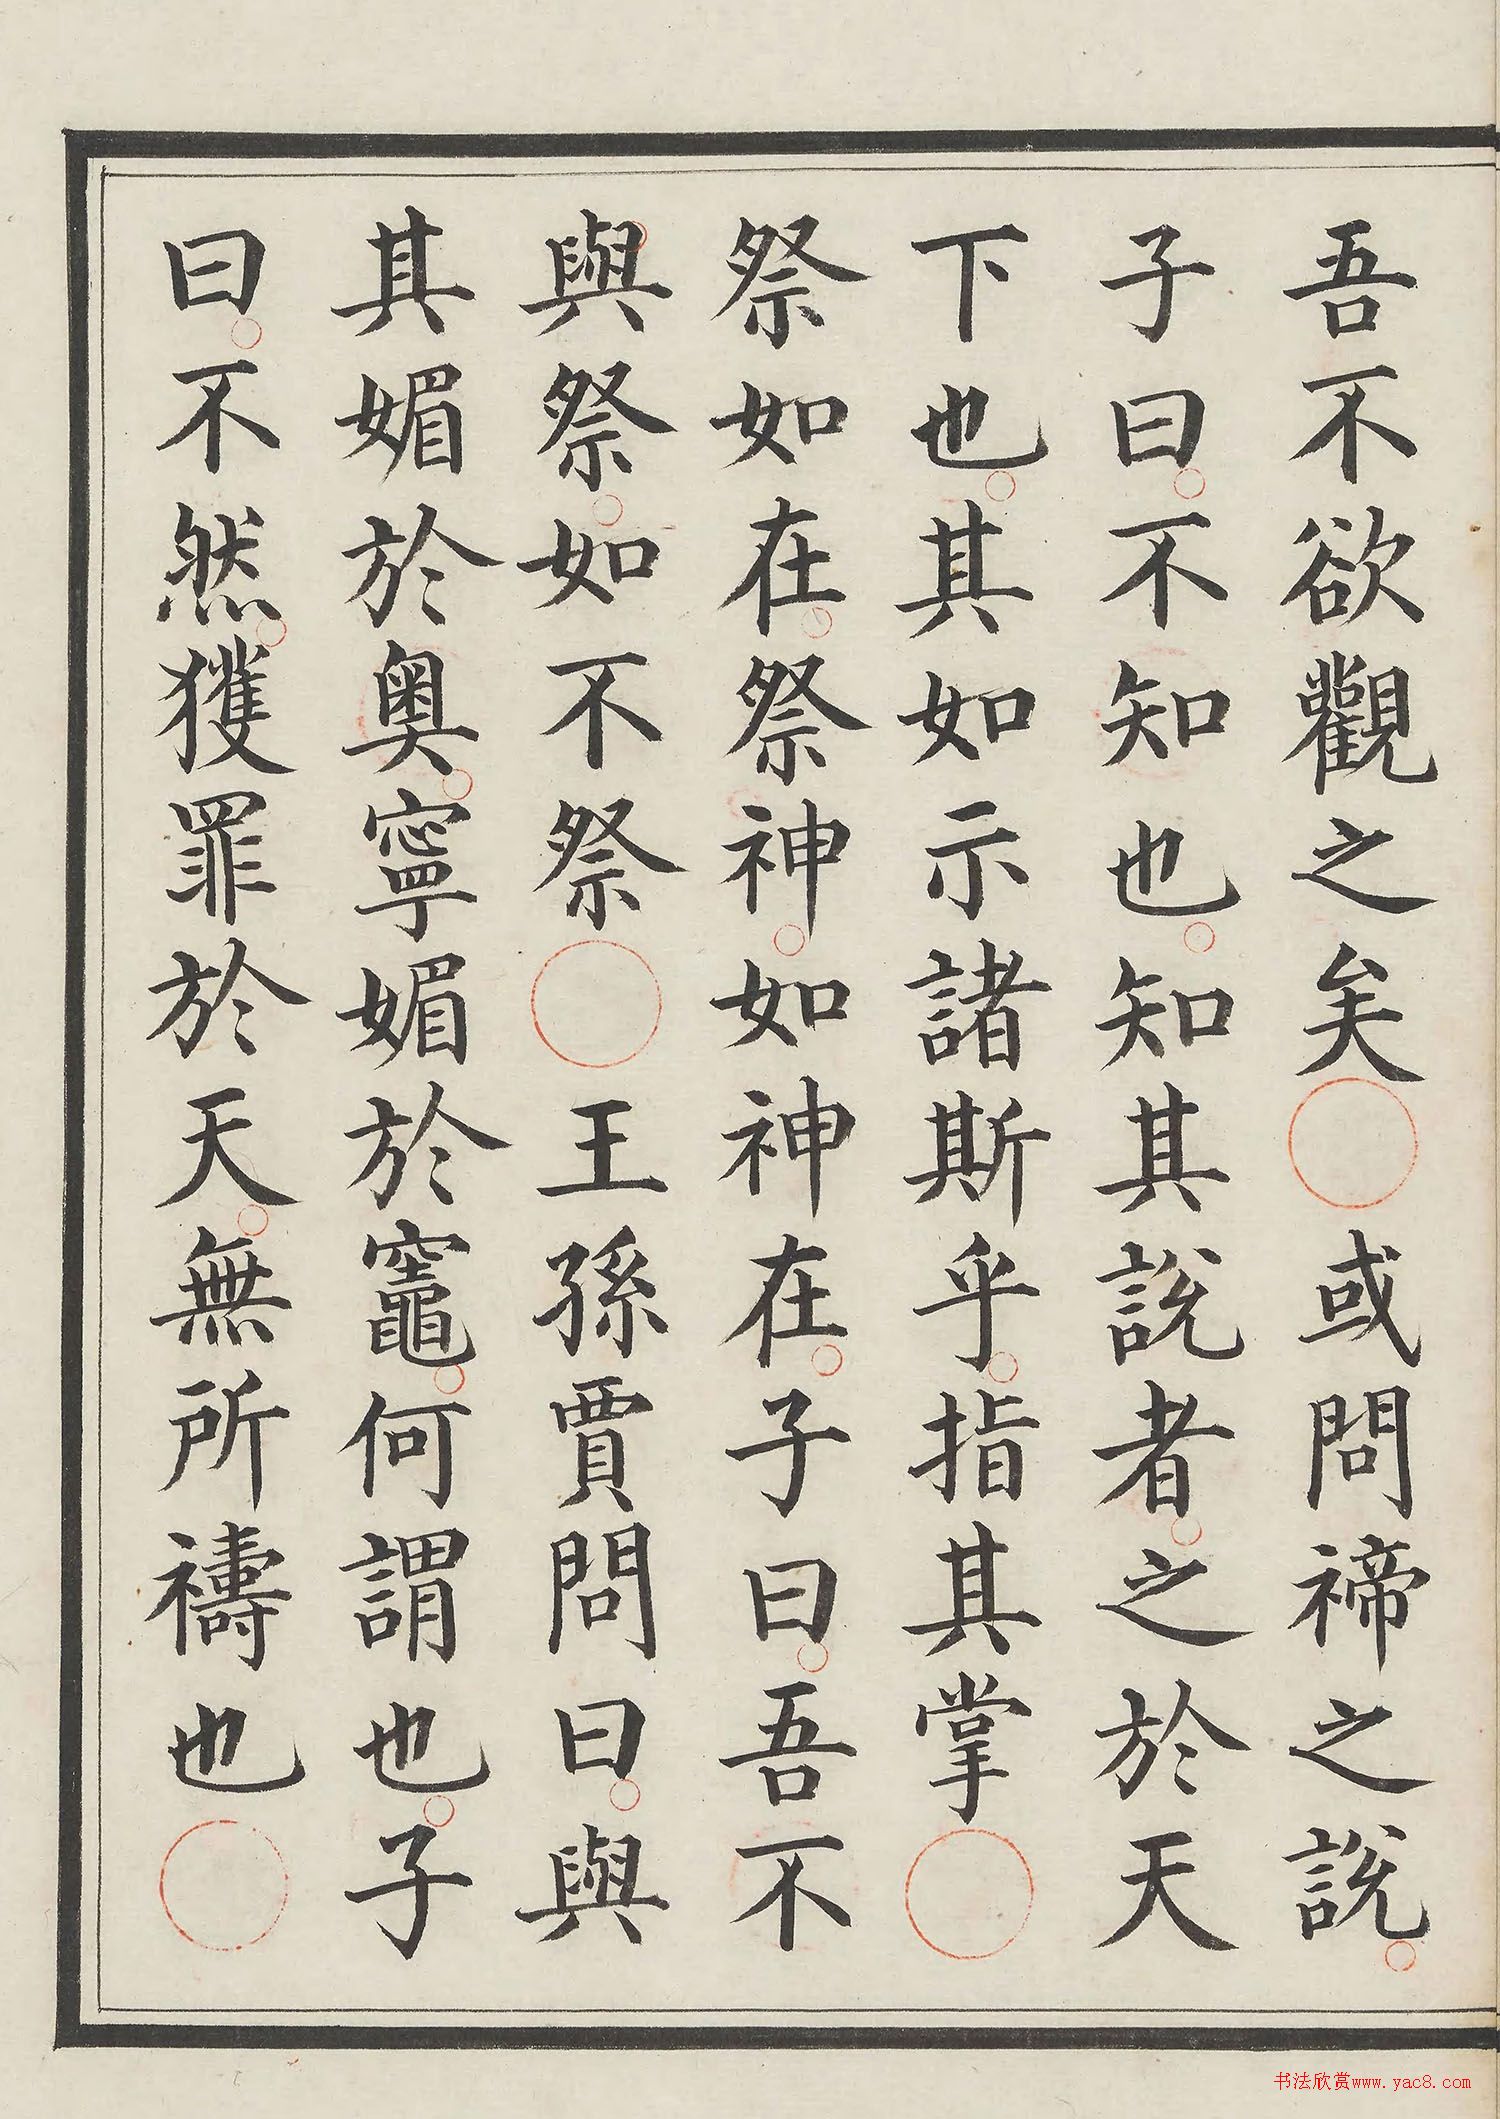 吾不欲觀之矣〇或問禘之說。
子曰。不知也。知其說者。之於天
下也。其如示諸斯乎。指其掌〇
祭如在。祭神。如神在。子曰。吾不
與祭。如不祭〇王孫賈問曰。與
其媚於奧。寧媚於竈。何謂也。子
曰。不然。獲罪於天。無所禱也〇
书法欣赏www.yac8.com